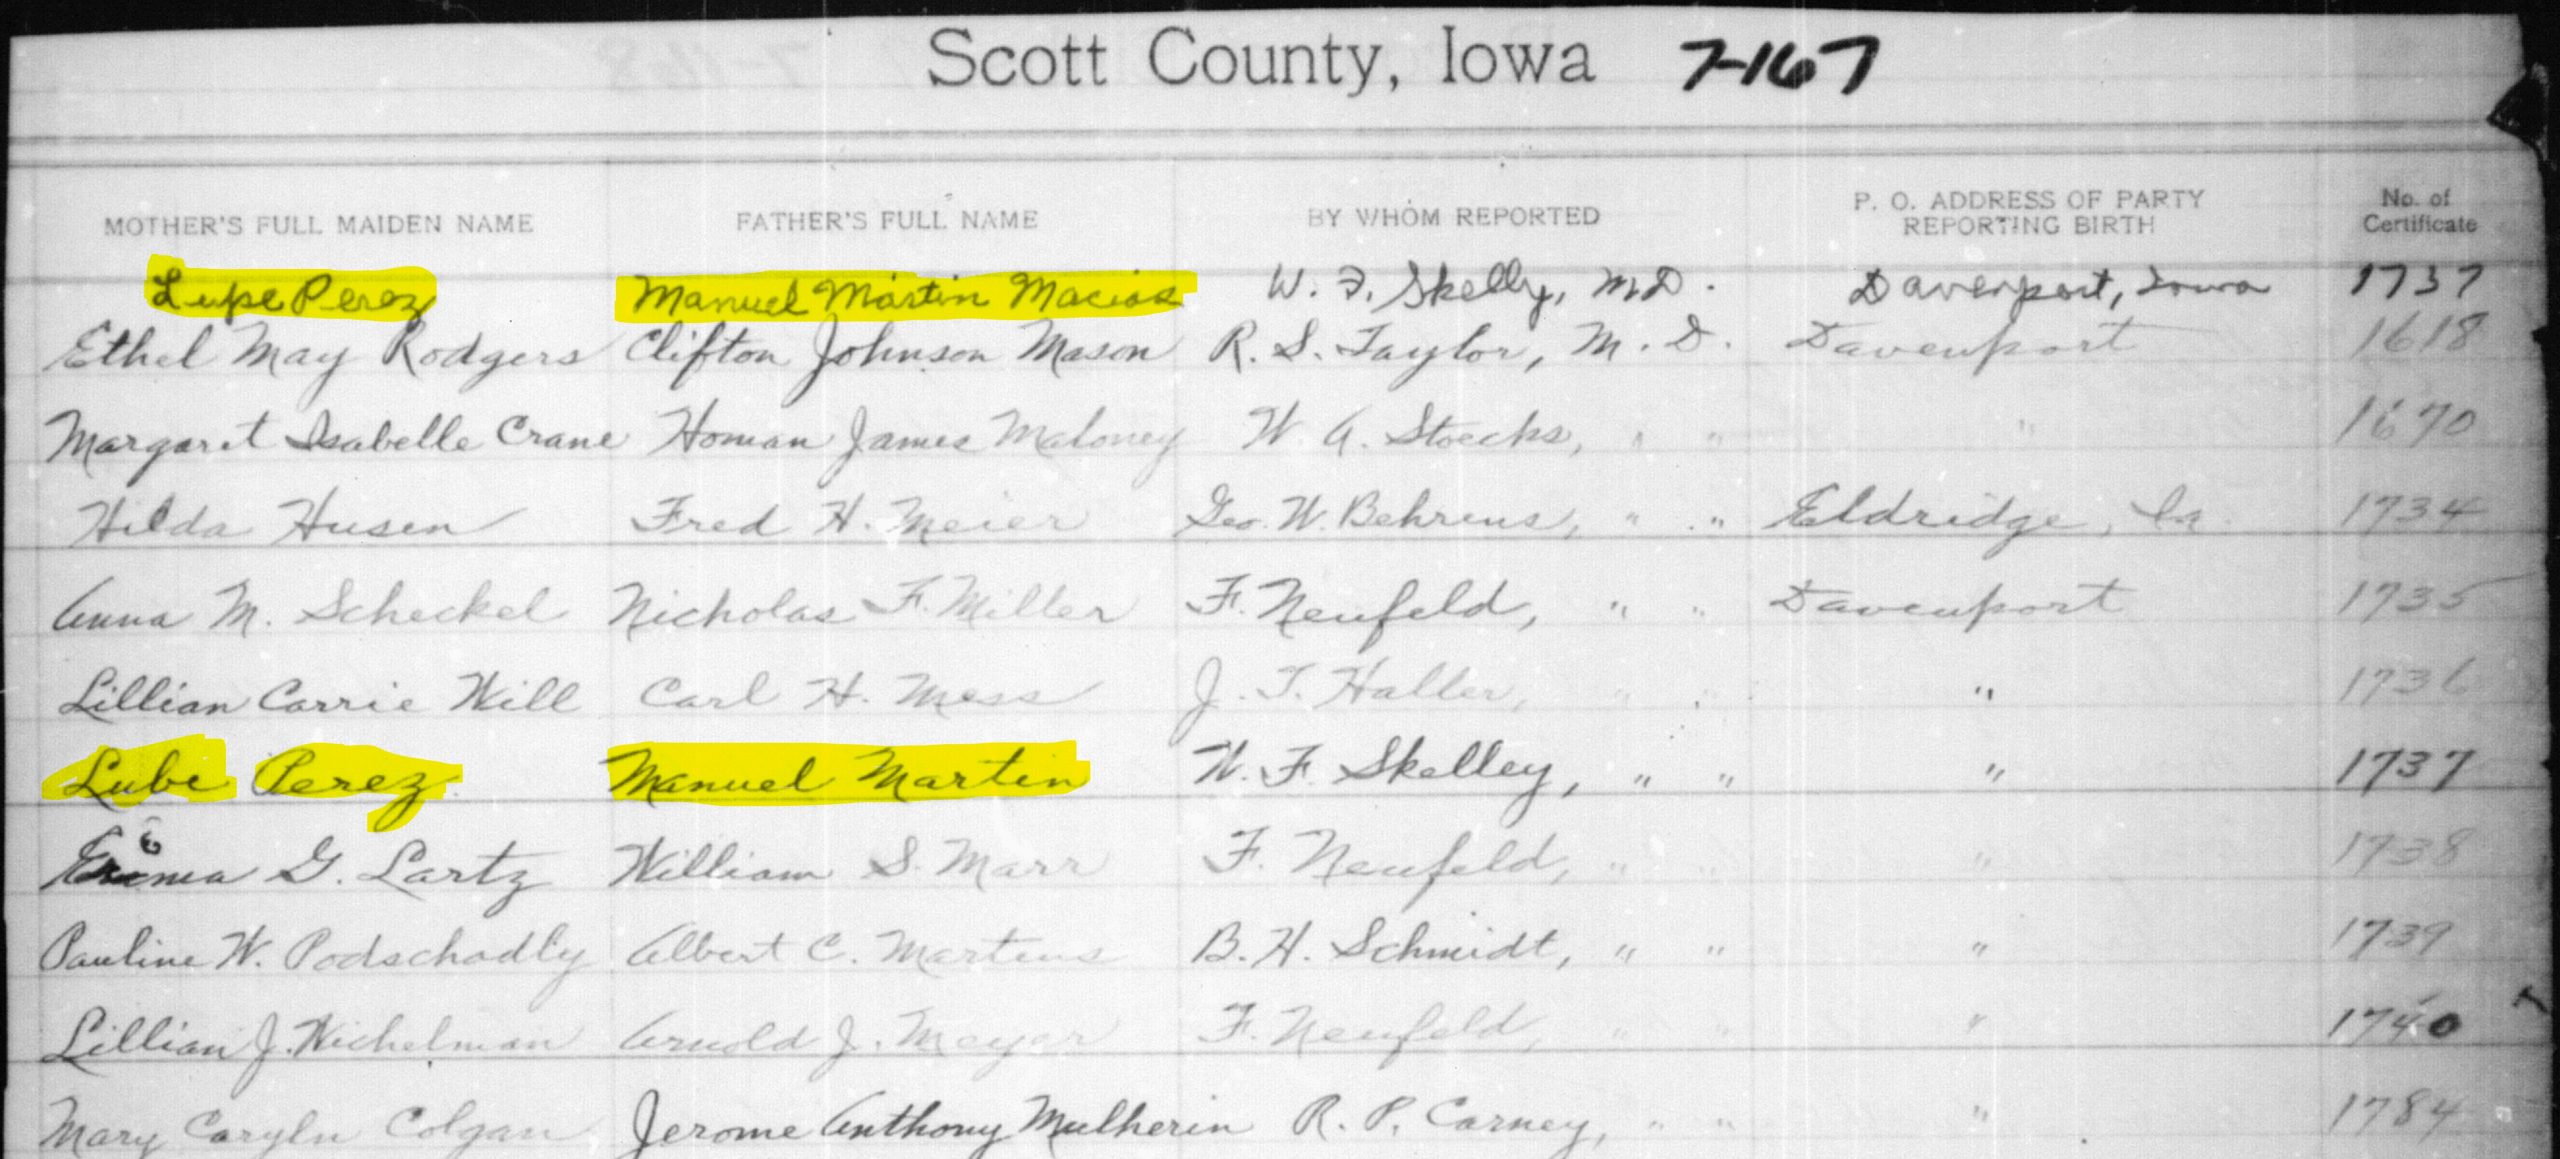 Scott County, Iowa 7-167
MOTHER'S FULL MAIDEN NAME FATHER'S FULL NAME BY WHOM REPORTED P. O. ADDRESS OF PARTY REPORTING BIRTH No. of Certificate
Lupe Perez Manuel Martin Macias W. F. Skelly, MD. Davenport, Iowa 1737
Ethel May Rodgers Clifton Johnson Mason R. S. Taylor, M. D. Davenport 1618
Margaret Isabelle Crane Homan James Maloney W. A. Stoecks, " " " 1670
Hilda Husen Fred H. Meier Geo. W. Behrens, " " Eldridge, Ia. 1734
Anna M. Scheckel Nicholas F. Miller F. Neufeld, " " Davenport 1735
Lillian Carrie Will Carl H. Mess J. T. Haller, " " " 1736
Lube Perez Manuel Martin W. F. Skelley, " " " 1737
G. Lartz William S. Marr F. Neufeld, " " " 1738
Pauline W. Podschadly Albert C. Martens B. H. Schmidt, " " " 1739
Lillian J. Wichelman Arnold J. Meyer F. Neufeld, " " " 1740
Mary Caryln Colgan Jerome Anthony Mulherin R. P. Carney, " " " 1784